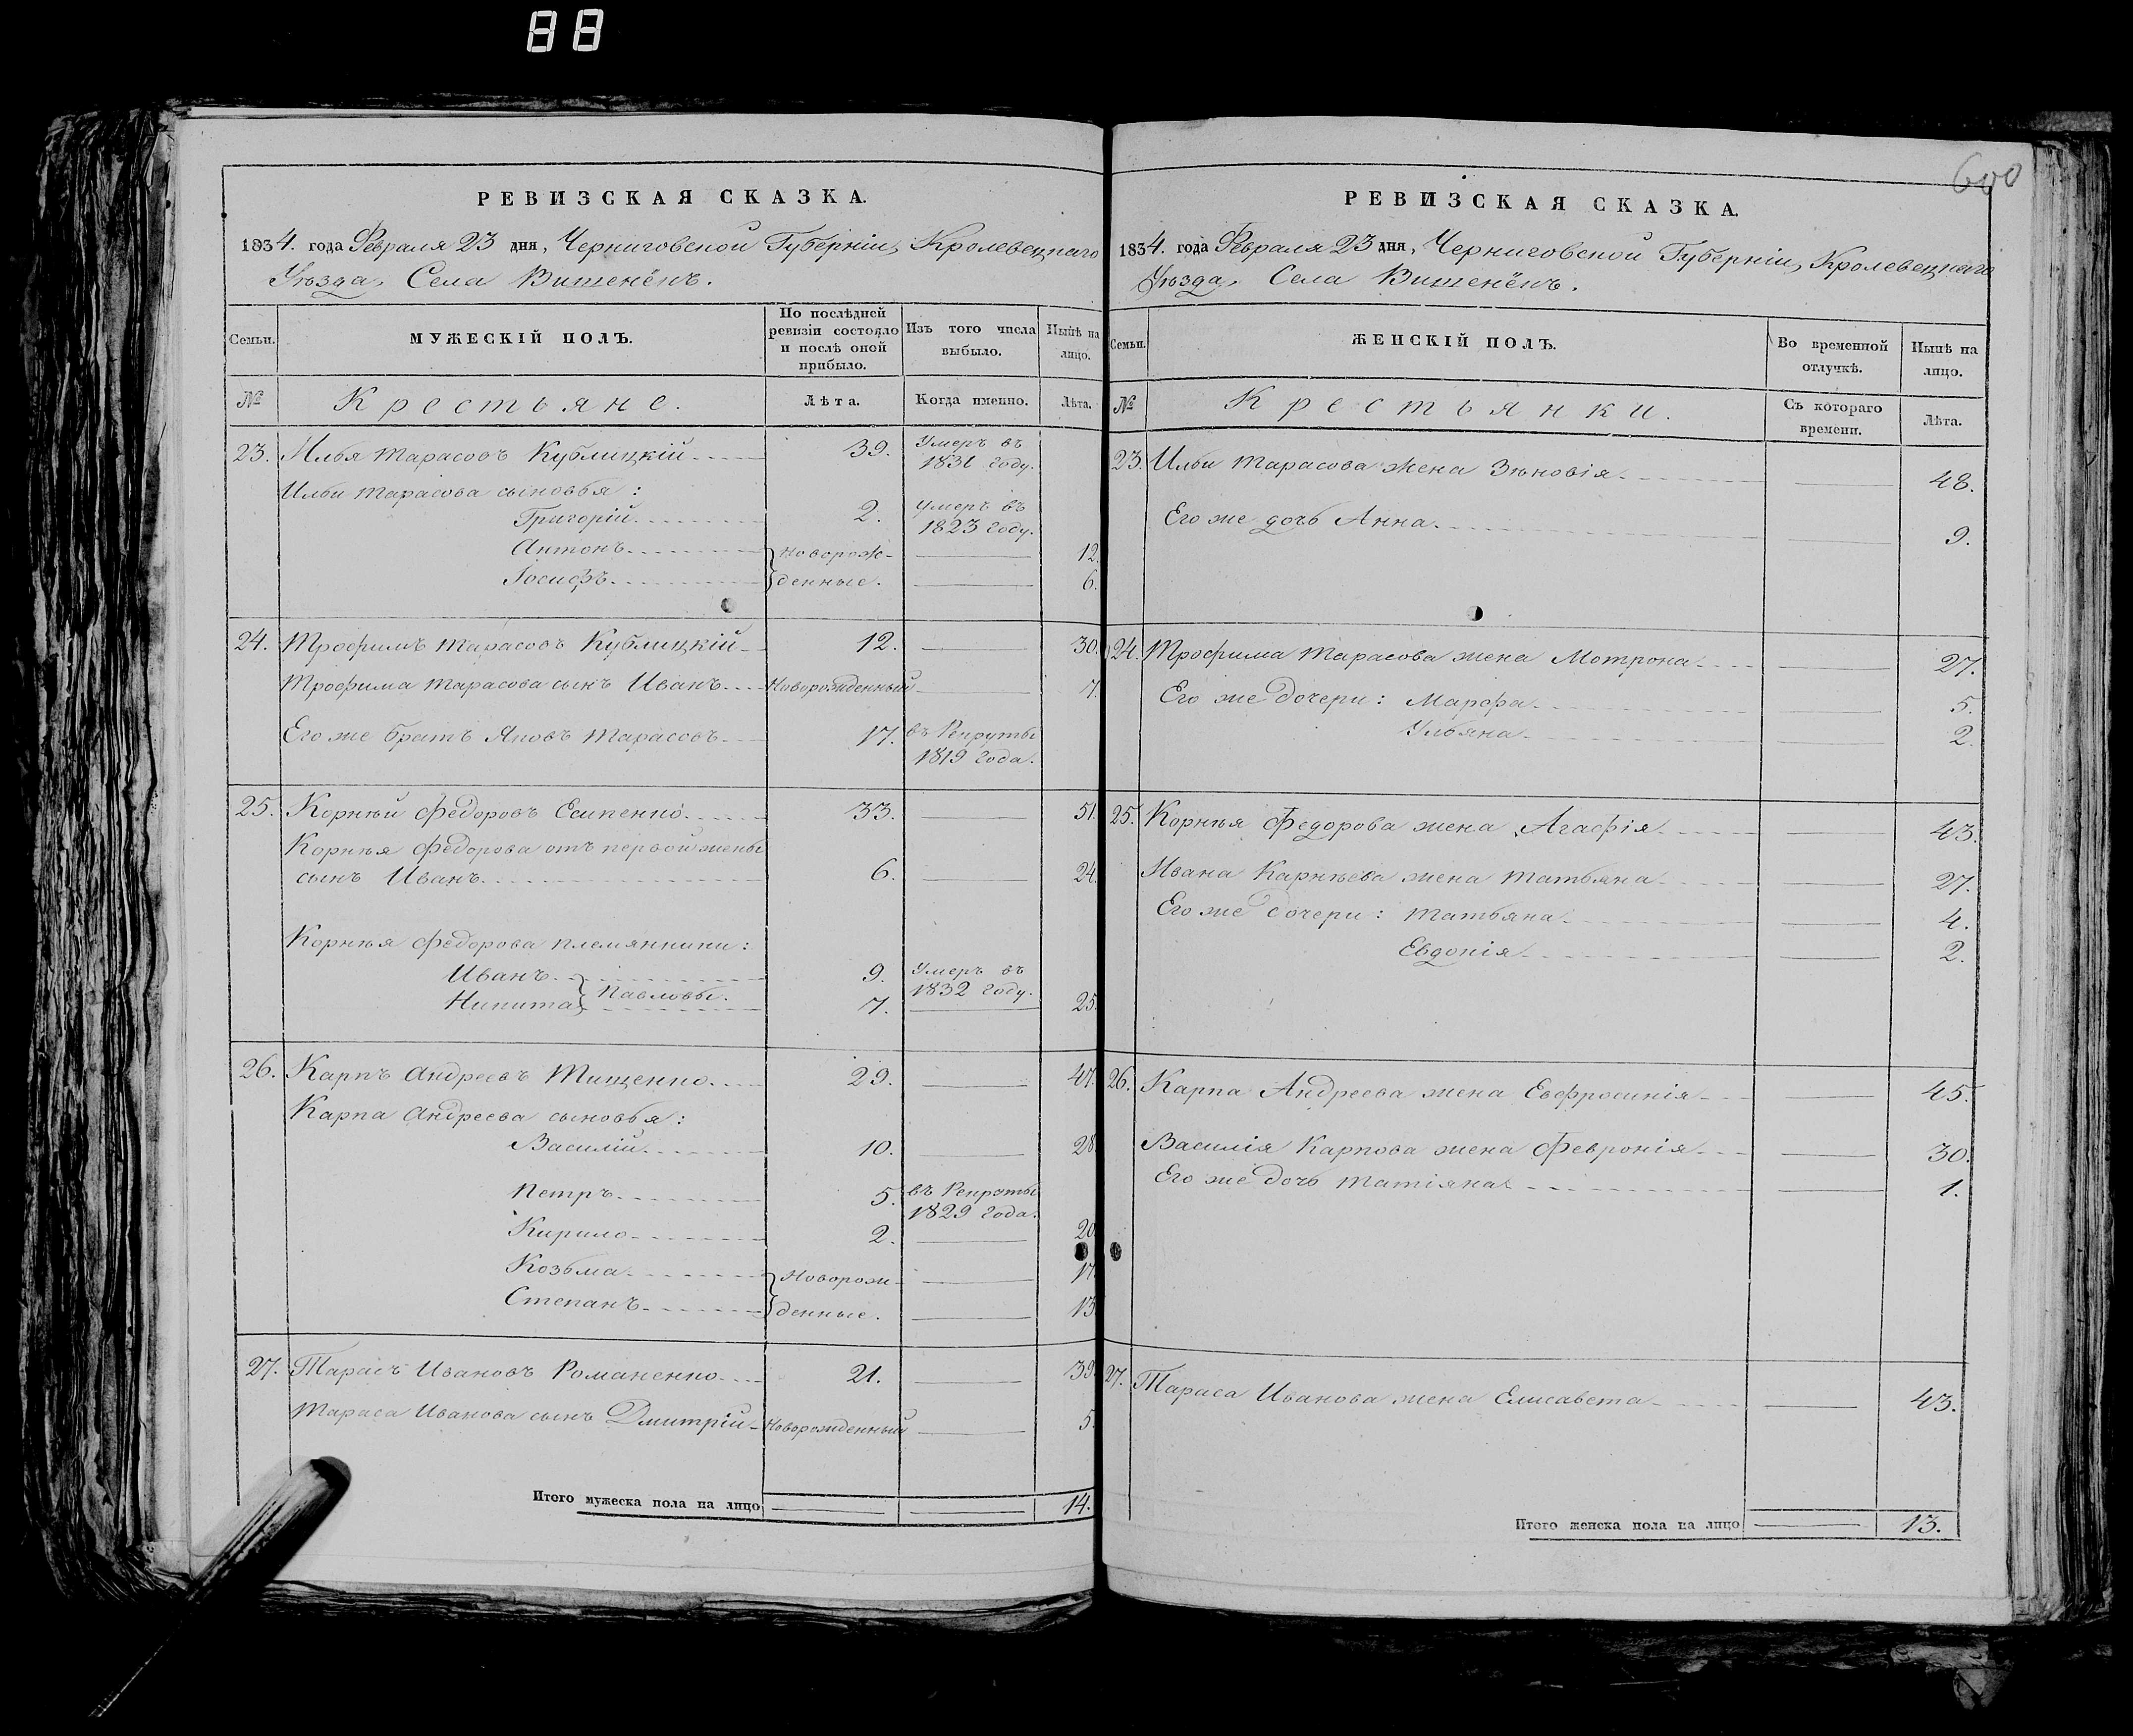 88
600
РЕВИЗСКАЯ СКАЗКА.
1834. года Февраля 23 дня, Черниговской Губерніи, Кролевецкаго
Уѣзда, Села Вишенёкъ.
Семьи.
МУЖЕСКІЙ ПОЛЪ.
По послѣдней ревизіи состояло и послѣ оной прибыло.
Изъ того числа выбыло.
Нынѣ на лицо.
№
Крестьяне.
Лѣта.
Когда именно.
Лѣта.
23. Илья Тарасовъ Кублицкій 39. Умеръ въ 1831 году.
Ильи Тарасова сыновья:
Григорій 2. Умеръ въ 1823 году.
Антонъ Новорож- 12.
Іосифъ денные. 6.
24. Трофимъ Тарасовъ Кублицкій 12. 30.
Трофима Тарасова сынъ Иванъ Новорожденный 7.
Его же братъ Яковъ Тарасовъ 17. въ Рекруты 1819 года.
25. Корнѣй Федоровъ Есипенко 33. 51.
Корнѣя Федорова отъ первой жены
сынъ Иванъ 6. 24.
Корнѣя Федорова племянники:
Иванъ 9. Умеръ въ 1832 году.
Павловы.
Никита 7. 25.
26. Карпъ Андреевъ Тищенко. 29. 47.
Карпа Андреева сыновья:
Василій 10. 28.
Петръ 5. въ Рекруты 1829 года.
Кирило 2. 20.
Козьма Новорож- 17.
Степанъ денные. 13.
27. Тарасъ Ивановъ Романенко 21. 39.
Тараса Иванова сынъ Дмитрій Новорожденный 5.
Итого мужеска пола на лицо 14.
РЕВИЗСКАЯ СКАЗКА.
1834. года Февраля 23 дня, Черниговской Губерніи, Кролевецкаго
Уѣзда, Села Вишенёкъ.
Семьи.
ЖЕНСКІЙ ПОЛЪ.
Во временной отлучкѣ.
Нынѣ на лицо.
№
Крестьянки.
Съ котораго времени.
Лѣта.
23. Ильи Тарасова жена Зѣновія 48.
Его же дочь Анна 9.
24. Трофима Тарасова жена Мотрона 27.
Его же дочери: Марфа 5.
Ульяна 2.
25. Корнѣя Федорова жена Агафія 43.
Ивана Карнѣева жена Татьяна 27.
Его же дочери: Татьяна 4.
Евдокія 2.
26. Карпа Андреева жена Евфросинія 45.
Василія Карпова жена Февронія 30.
Его же дочь Татіяна 1.
27. Тараса Иванова жена Елисавета 43.
Итого женска пола на лицо 13.